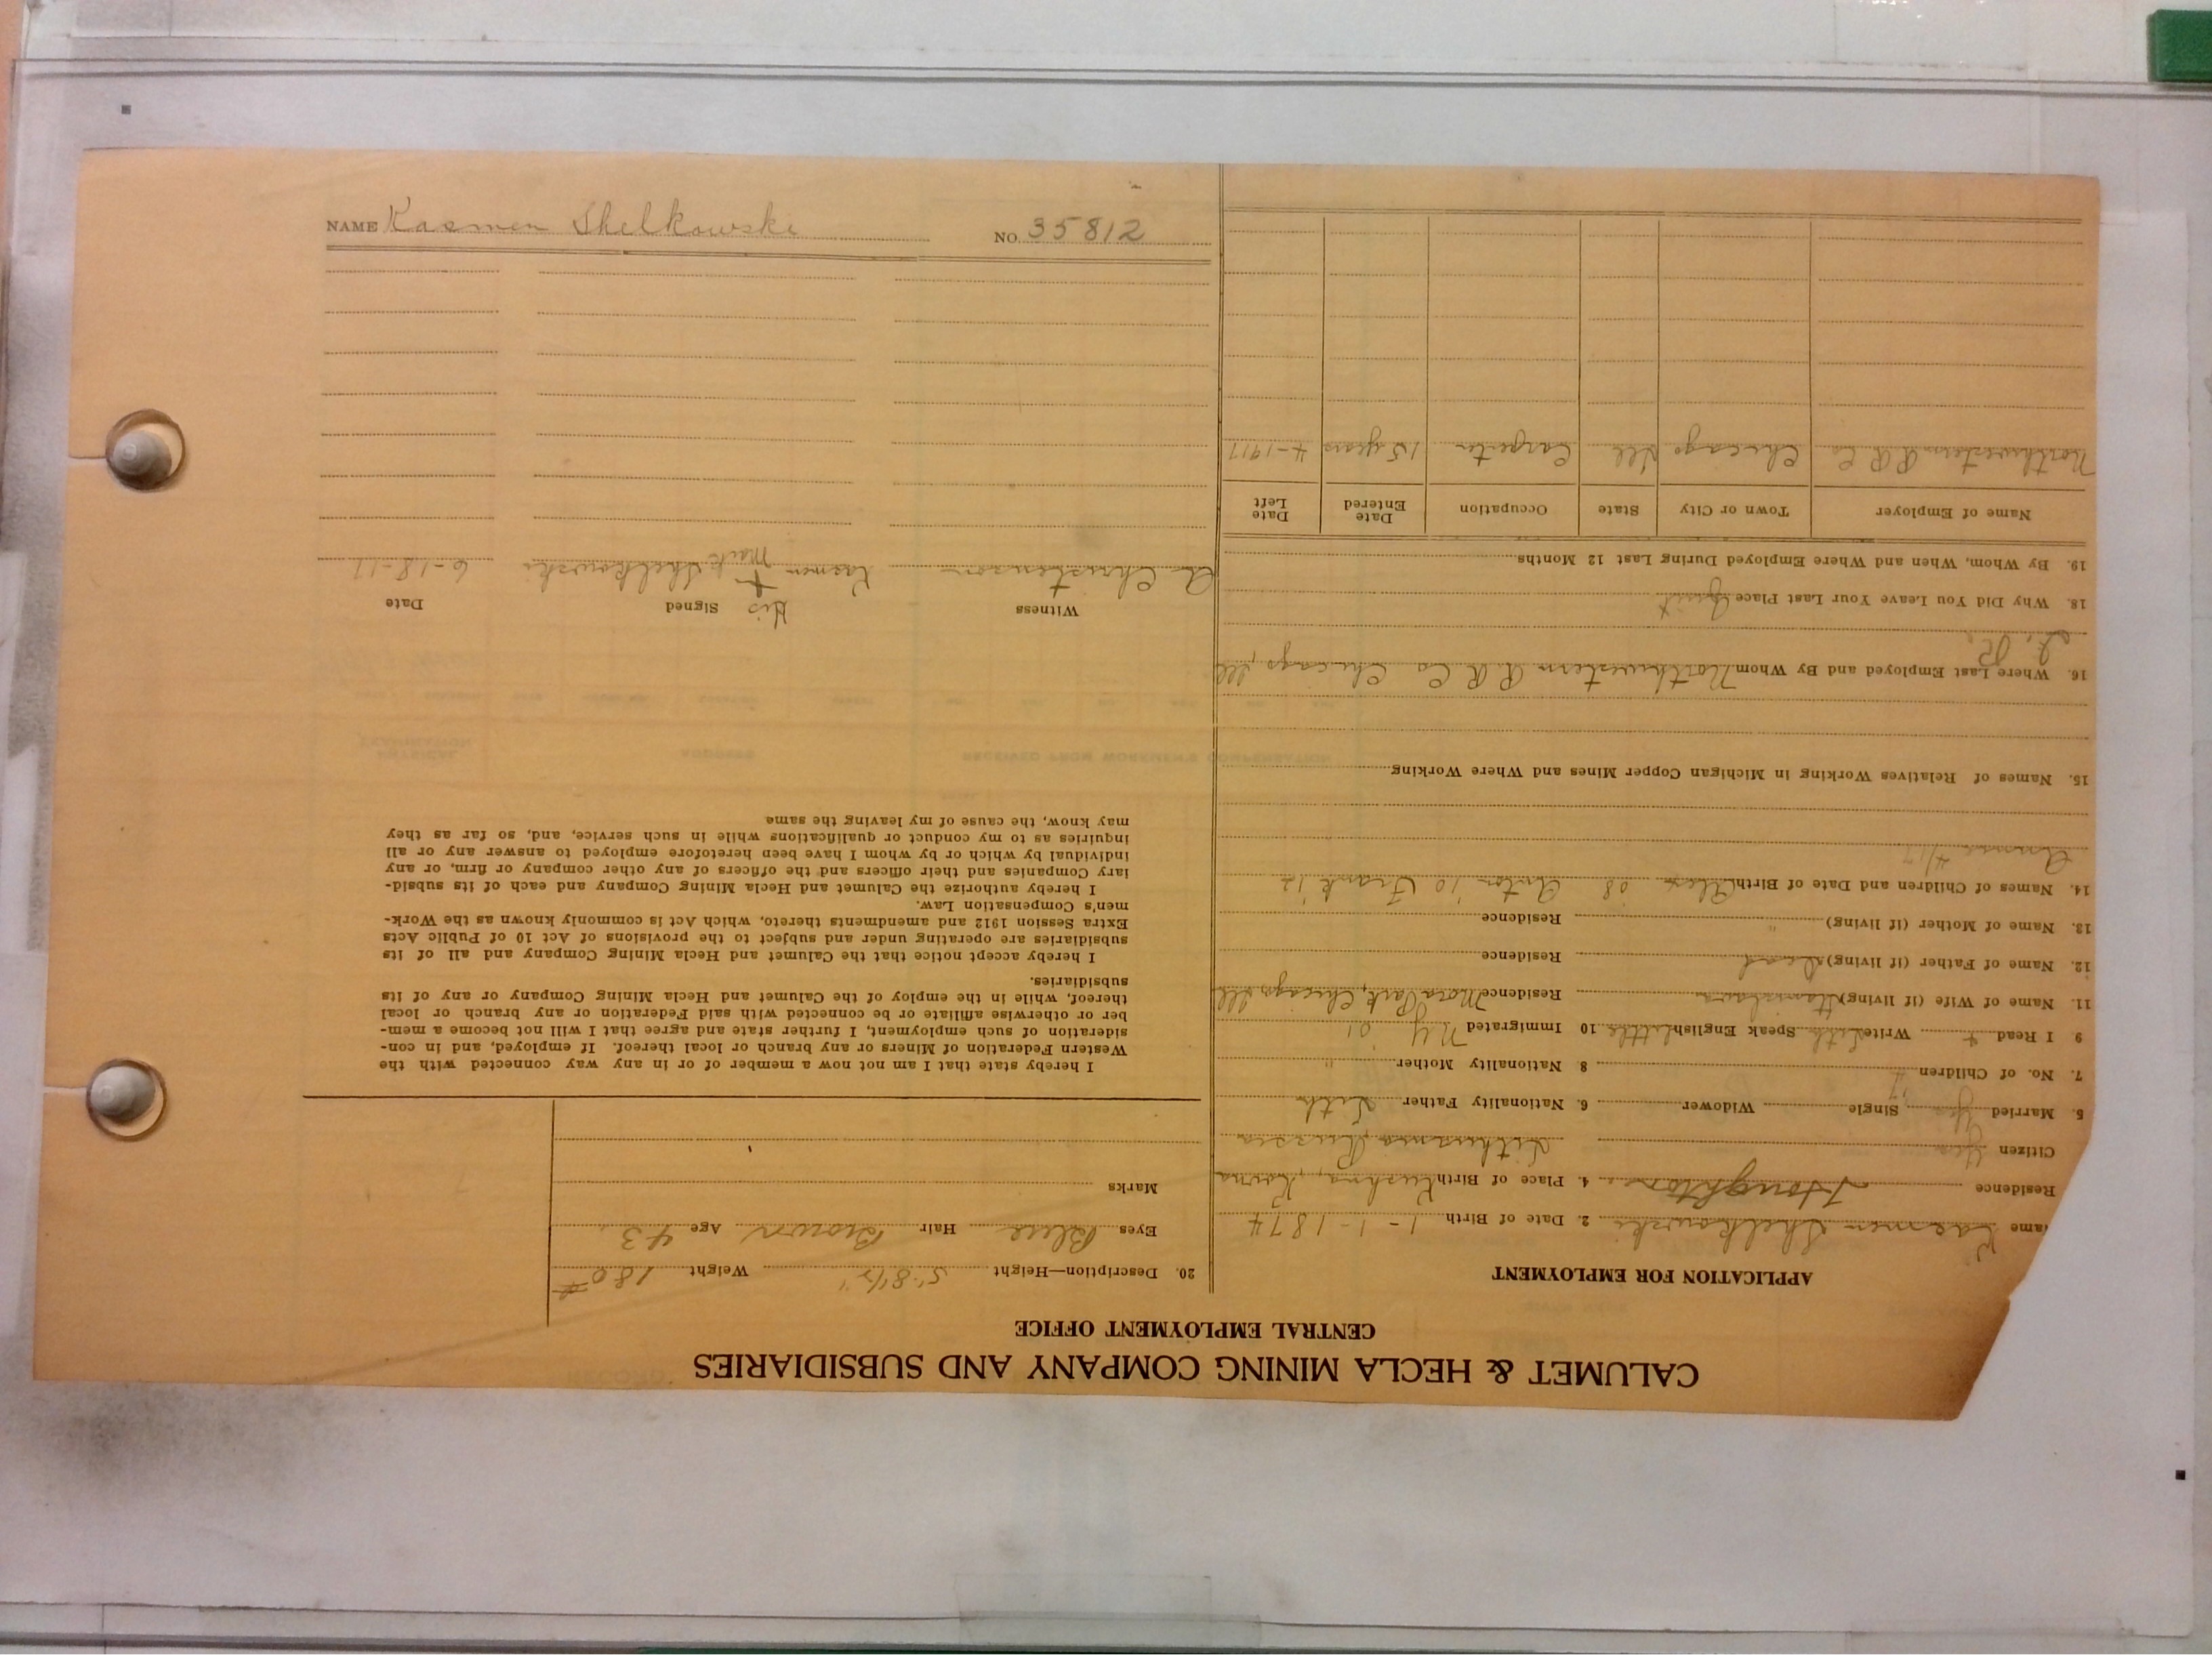 CALUMET & HECLA MINING COMPANY AND SUBSIDIARIES
CENTRAL EMPLOYMENT OFFICE
APPLICATION FOR EMPLOYMENT
ame Kasmen Shelkowski 2. Date of Birth 1-1-1874
Residence Houghton 4. Place of Birth Kushna, Kovna
Citizen Yes Lithuania, Russia
5. Married Yes Single Widower 6. Nationality Father Lith
7. No. of Children 4 8 Nationality Mother "
9 I Read + Write Lith Speak English Little 10 Immigrated N Y '01
11. Name of Wife (if living) Residence Park, Chicago Ill
12. Name of Father (if living) Dead Residence
13. Name of Mother (if living) " Residence
14. Names of Children and Date of Birth Alex '08 Anton '10 Frank '12
4/17
15. Names of Relatives Working in Michigan Copper Mines and Where Working
16. Where Last Employed and By Whom Northwestern R R Co Chicago, Ill
18. Why Did You Leave Your Last Place Quit
19. By Whom, When and Where Employed During Last 12 Months
Name of Employer Town or City State Occupation Date Entered Date Left
Northwestern R R Co Chicago Ill Carpenter 15 years 4-1917
20. Description—Height 5' 8 1/2" Weight 180 #
Eyes Blue Hair Brown Age 43
Marks
I hereby state that I am not now a member of or in any way connected with the
Western Federation of Miners or any branch or local thereof. If employed, and in con-
sideration of such employment, I further state and agree that I will not become a mem-
ber or otherwise affiliate or be connected with said Federation or any branch or local
thereof, while in the employ of the Calumet and Hecla Mining Company or any of its
subsidiaries.
I hereby accept notice that the Calumet and Hecla Mining Company and all of its
subsidiaries are operating under and subject to the provisions of Act 10 of Public Acts
Extra Session 1912 and amendments thereto, which Act is commonly known as the Work-
men's Compensation Law.
I hereby authorize the Calumet and Hecla Mining Company and each of its subsid-
iary Companies and their officers and the officers of any other company or firm, or any
individual by which or by whom I have been heretofore employed to answer any or all
inquiries as to my conduct or qualifications while in such service, and, so far as they
may know, the cause of my leaving the same.
Witness His Signed Date
A Christenson Kasmen + Shelkowski 6-18-17
Mark
NAME Kasmen Shelkowski NO. 35812